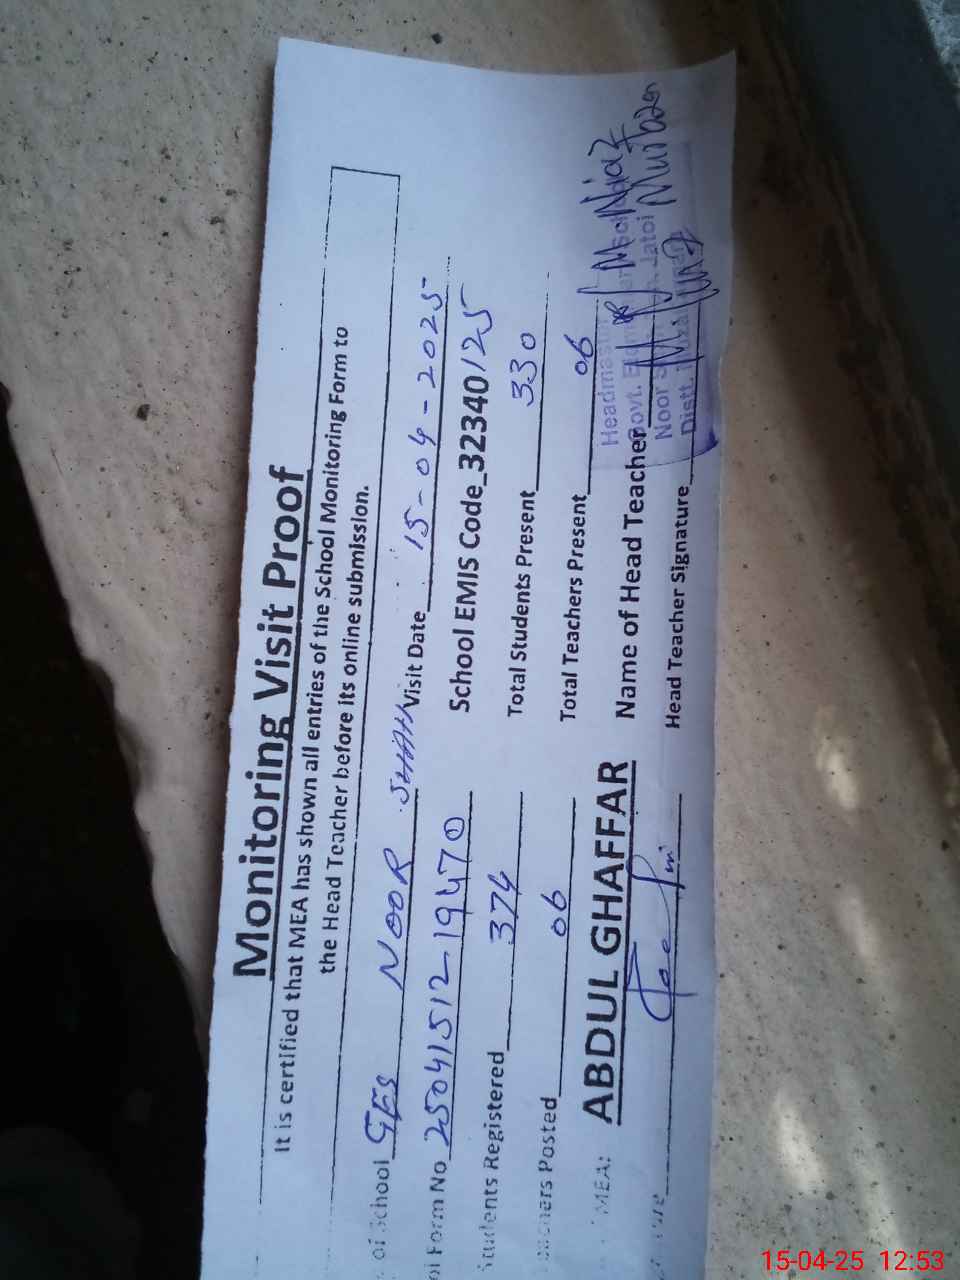 Monitoring Visit Proof
It is certified that MEA has shown all entries of the School Monitoring Form to
the Head Teacher before its online submission.
of School GES NOOR SHAH Visit Date 15-04-2025
Form No 2504151219470 School EMIS Code_32340125
Students Registered 374 Total Students Present 330
Posted 06 Total Teachers Present 06
MEA: ABDUL GHAFFAR Name of Head Teacher M. Niaz
Head Teacher Signature
Govt.
Noor Jatoi
Distt.
15-04-25 12:53